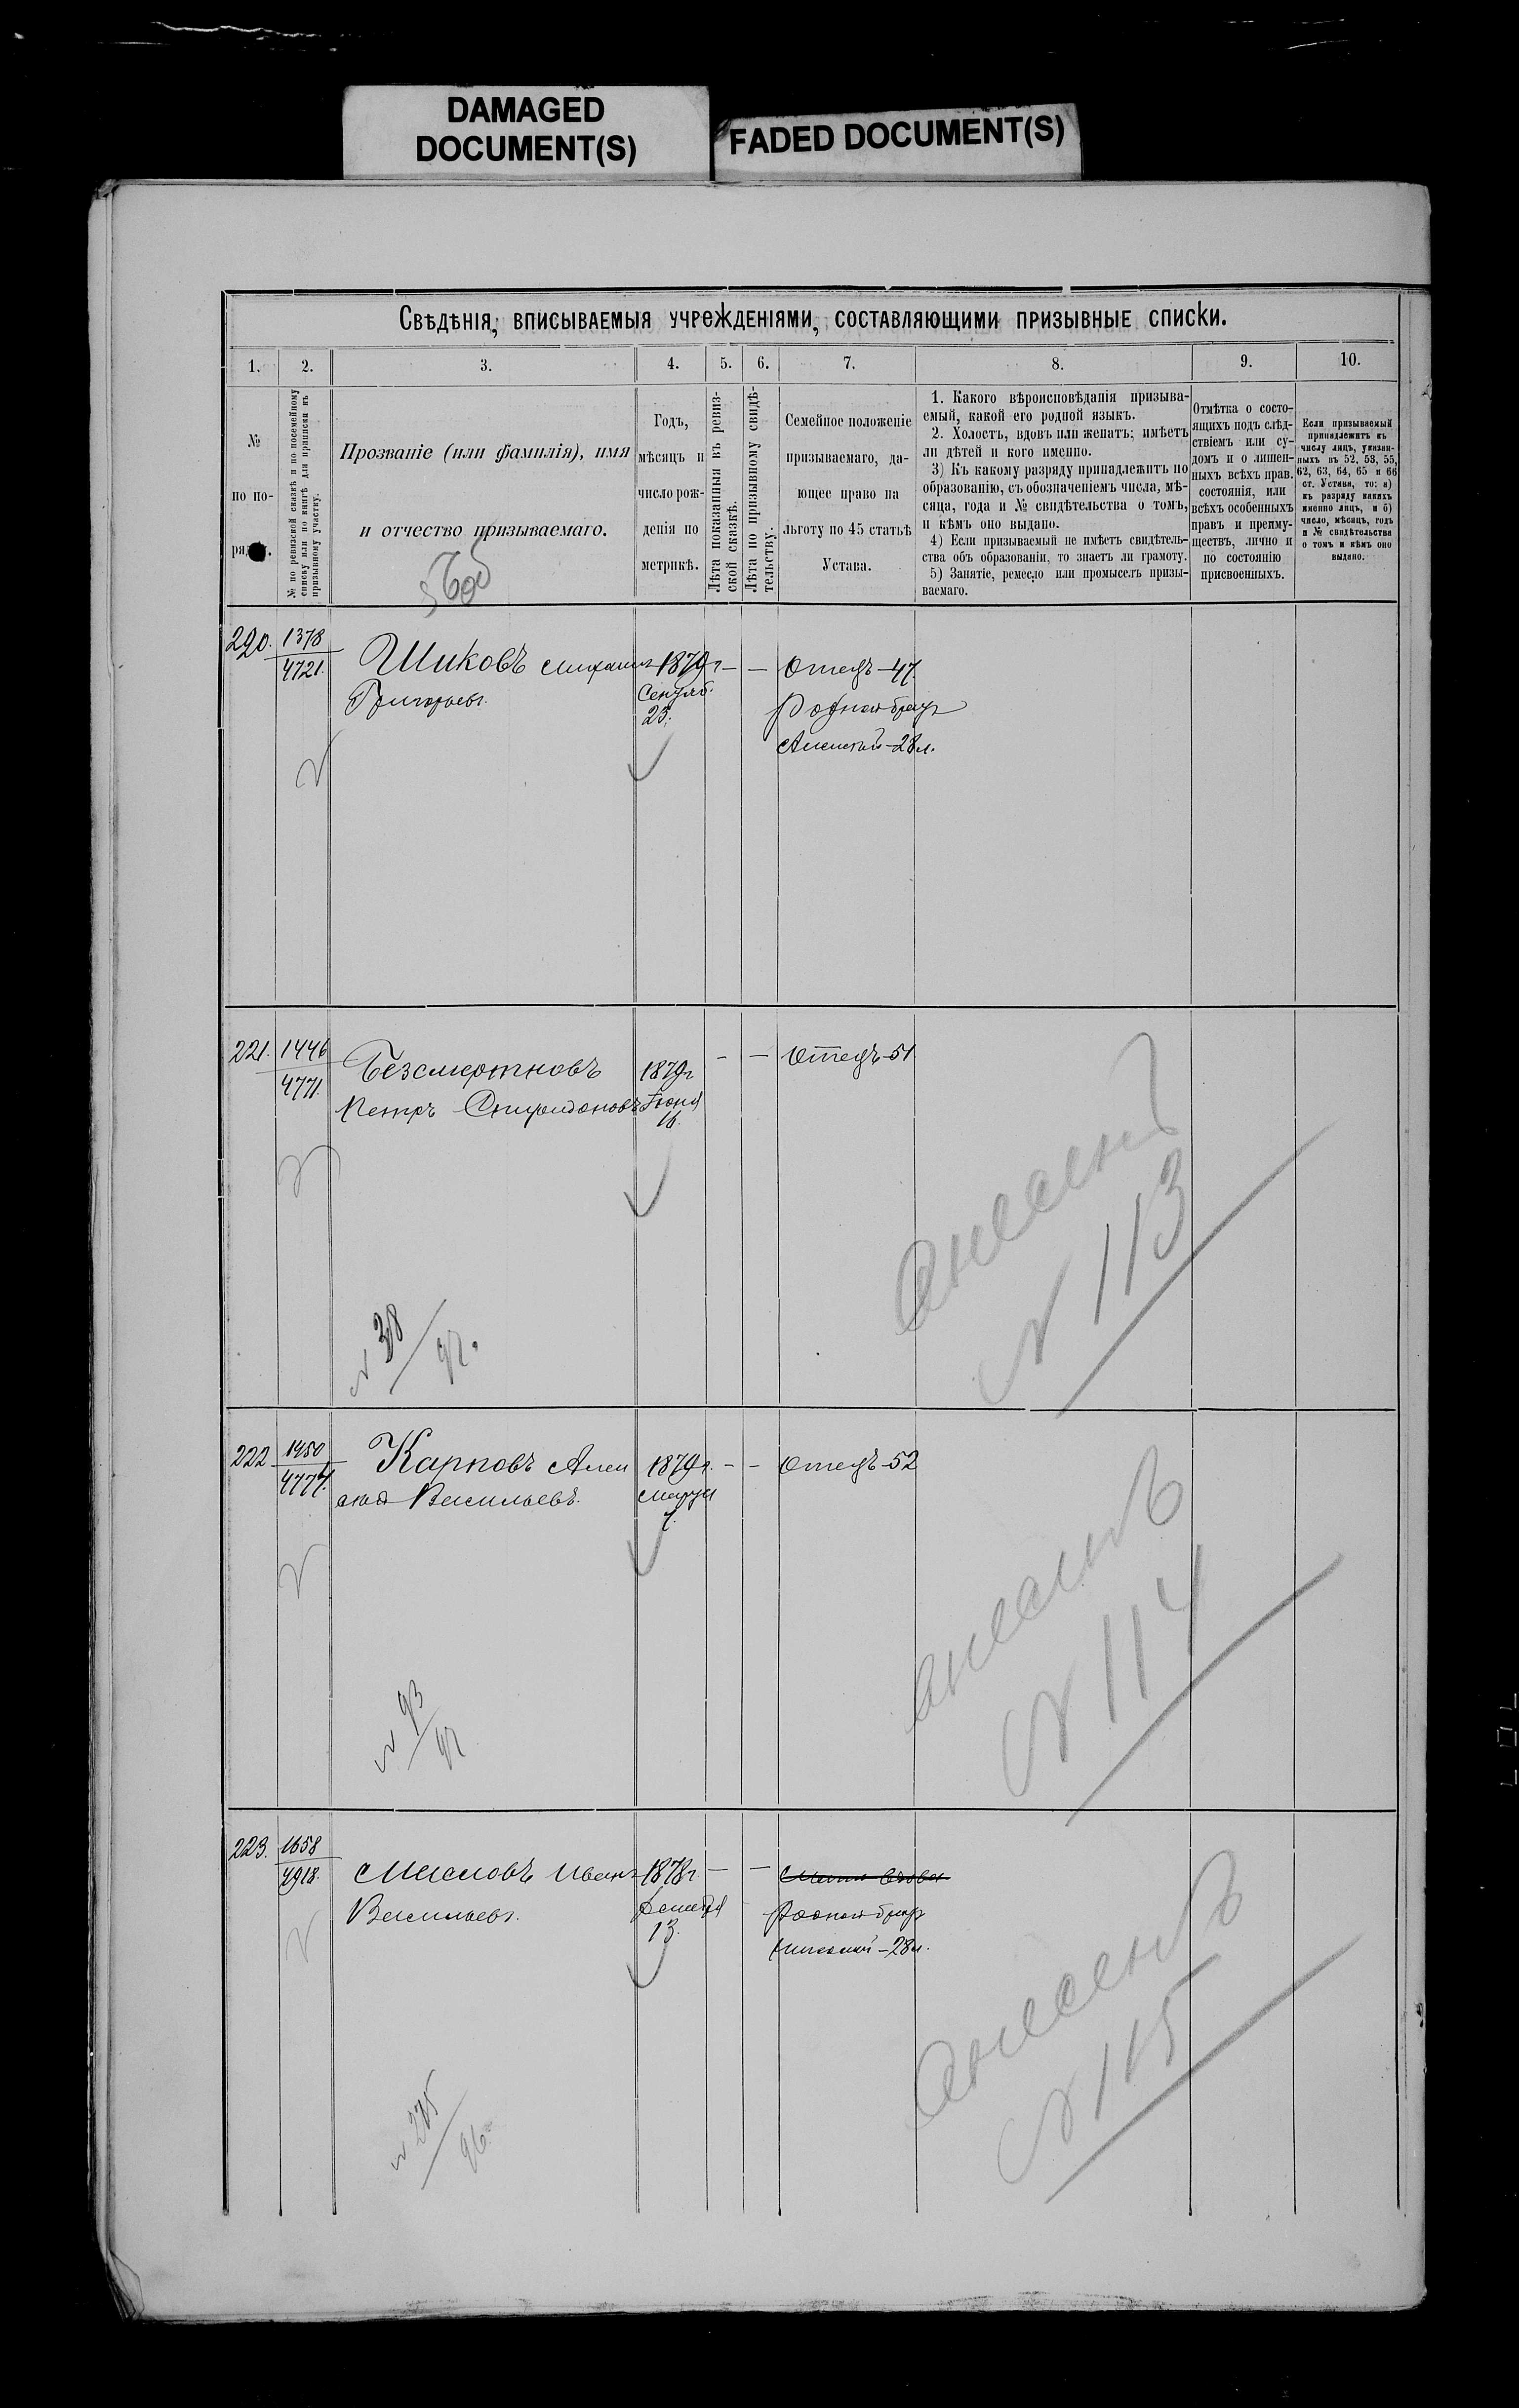 DAMAGED
DOCUMENT(S)
FADED DOCUMENT(S)
Свѣдѣнія, вписываемыя учрежденіями, составляющими призывные списки.
1. 2. 3. 4. 5. 6. 7. 8. 9. 10.
№
по по-
№ по ревизской сказкѣ и по посемейному
списку или по книгѣ для приписки къ
призывному участку.
Прозваніе (или фамилія), имя
и отчество призываемаго.
Годъ,
мѣсяцъ и
число рож-
денія по
метрикѣ.
Лѣта показанныя въ ревиз-
ской сказкѣ.
Лѣта по призывному свидѣ-
тельству.
Семейное положеніе
призываемаго, да-
ющее право на
льготу по 45 статьѣ
Устава.
1. Какого вѣроисповѣданія призыва-
емый, какой его родной языкъ.
2. Холостъ, вдовъ или женатъ; имѣетъ
ли дѣтей и кого именно.
3) Къ какому разряду принадлежитъ по
образованію, съ обозначеніемъ числа, мѣ-
сяца, года и № свидѣтельства о томъ,
и кѣмъ оно выдано.
4) Если призываемый не имѣетъ свидѣтель-
ства объ образованіи, то знаетъ ли грамоту.
5) Занятіе, ремесло или промыселъ призы-
ваемаго.
Отмѣтка о состо-
ящихъ подъ слѣд-
ствіемъ или су-
домъ и о лишен-
ныхъ всѣхъ прав.
состоянія, или
всѣхъ особенныхъ
правъ и преиму-
ществъ, лично и
по состоянію
присвоенныхъ.
Если призываемый
принадлежитъ къ
числу лицъ, указан-
ныхъ въ 52, 53, 55,
62, 63, 64, 65 и 66
ст. Устава, то: а)
къ разряду какихъ
именно лицъ, и б)
число, мѣсяцъ, годъ
и № свидѣтельства
о томъ и кѣмъ оно
выдано.
220. 1378 Шиковъ Михаилъ 1879г - - Отецъ-47
4721. Григорьевъ. Сентяб.
23. Родной братъ
Алексѣй-28л.
221. 1446 Безсмертновъ 1879г - - Отецъ-51
4771. Петръ Спиридоновъ Іюня
16.
№ 113
№ 38
97.
222 1450 Карповъ Алек 1879г. - - Отецъ-52
4774. Васильевъ. Марта
№ 114
№ 93
97
223. 1658 Масловъ Иванъ 1878г. - -
4918. Васильевъ. Декабря Родной братъ
13. 28л.
№ 115
№ 275
96.